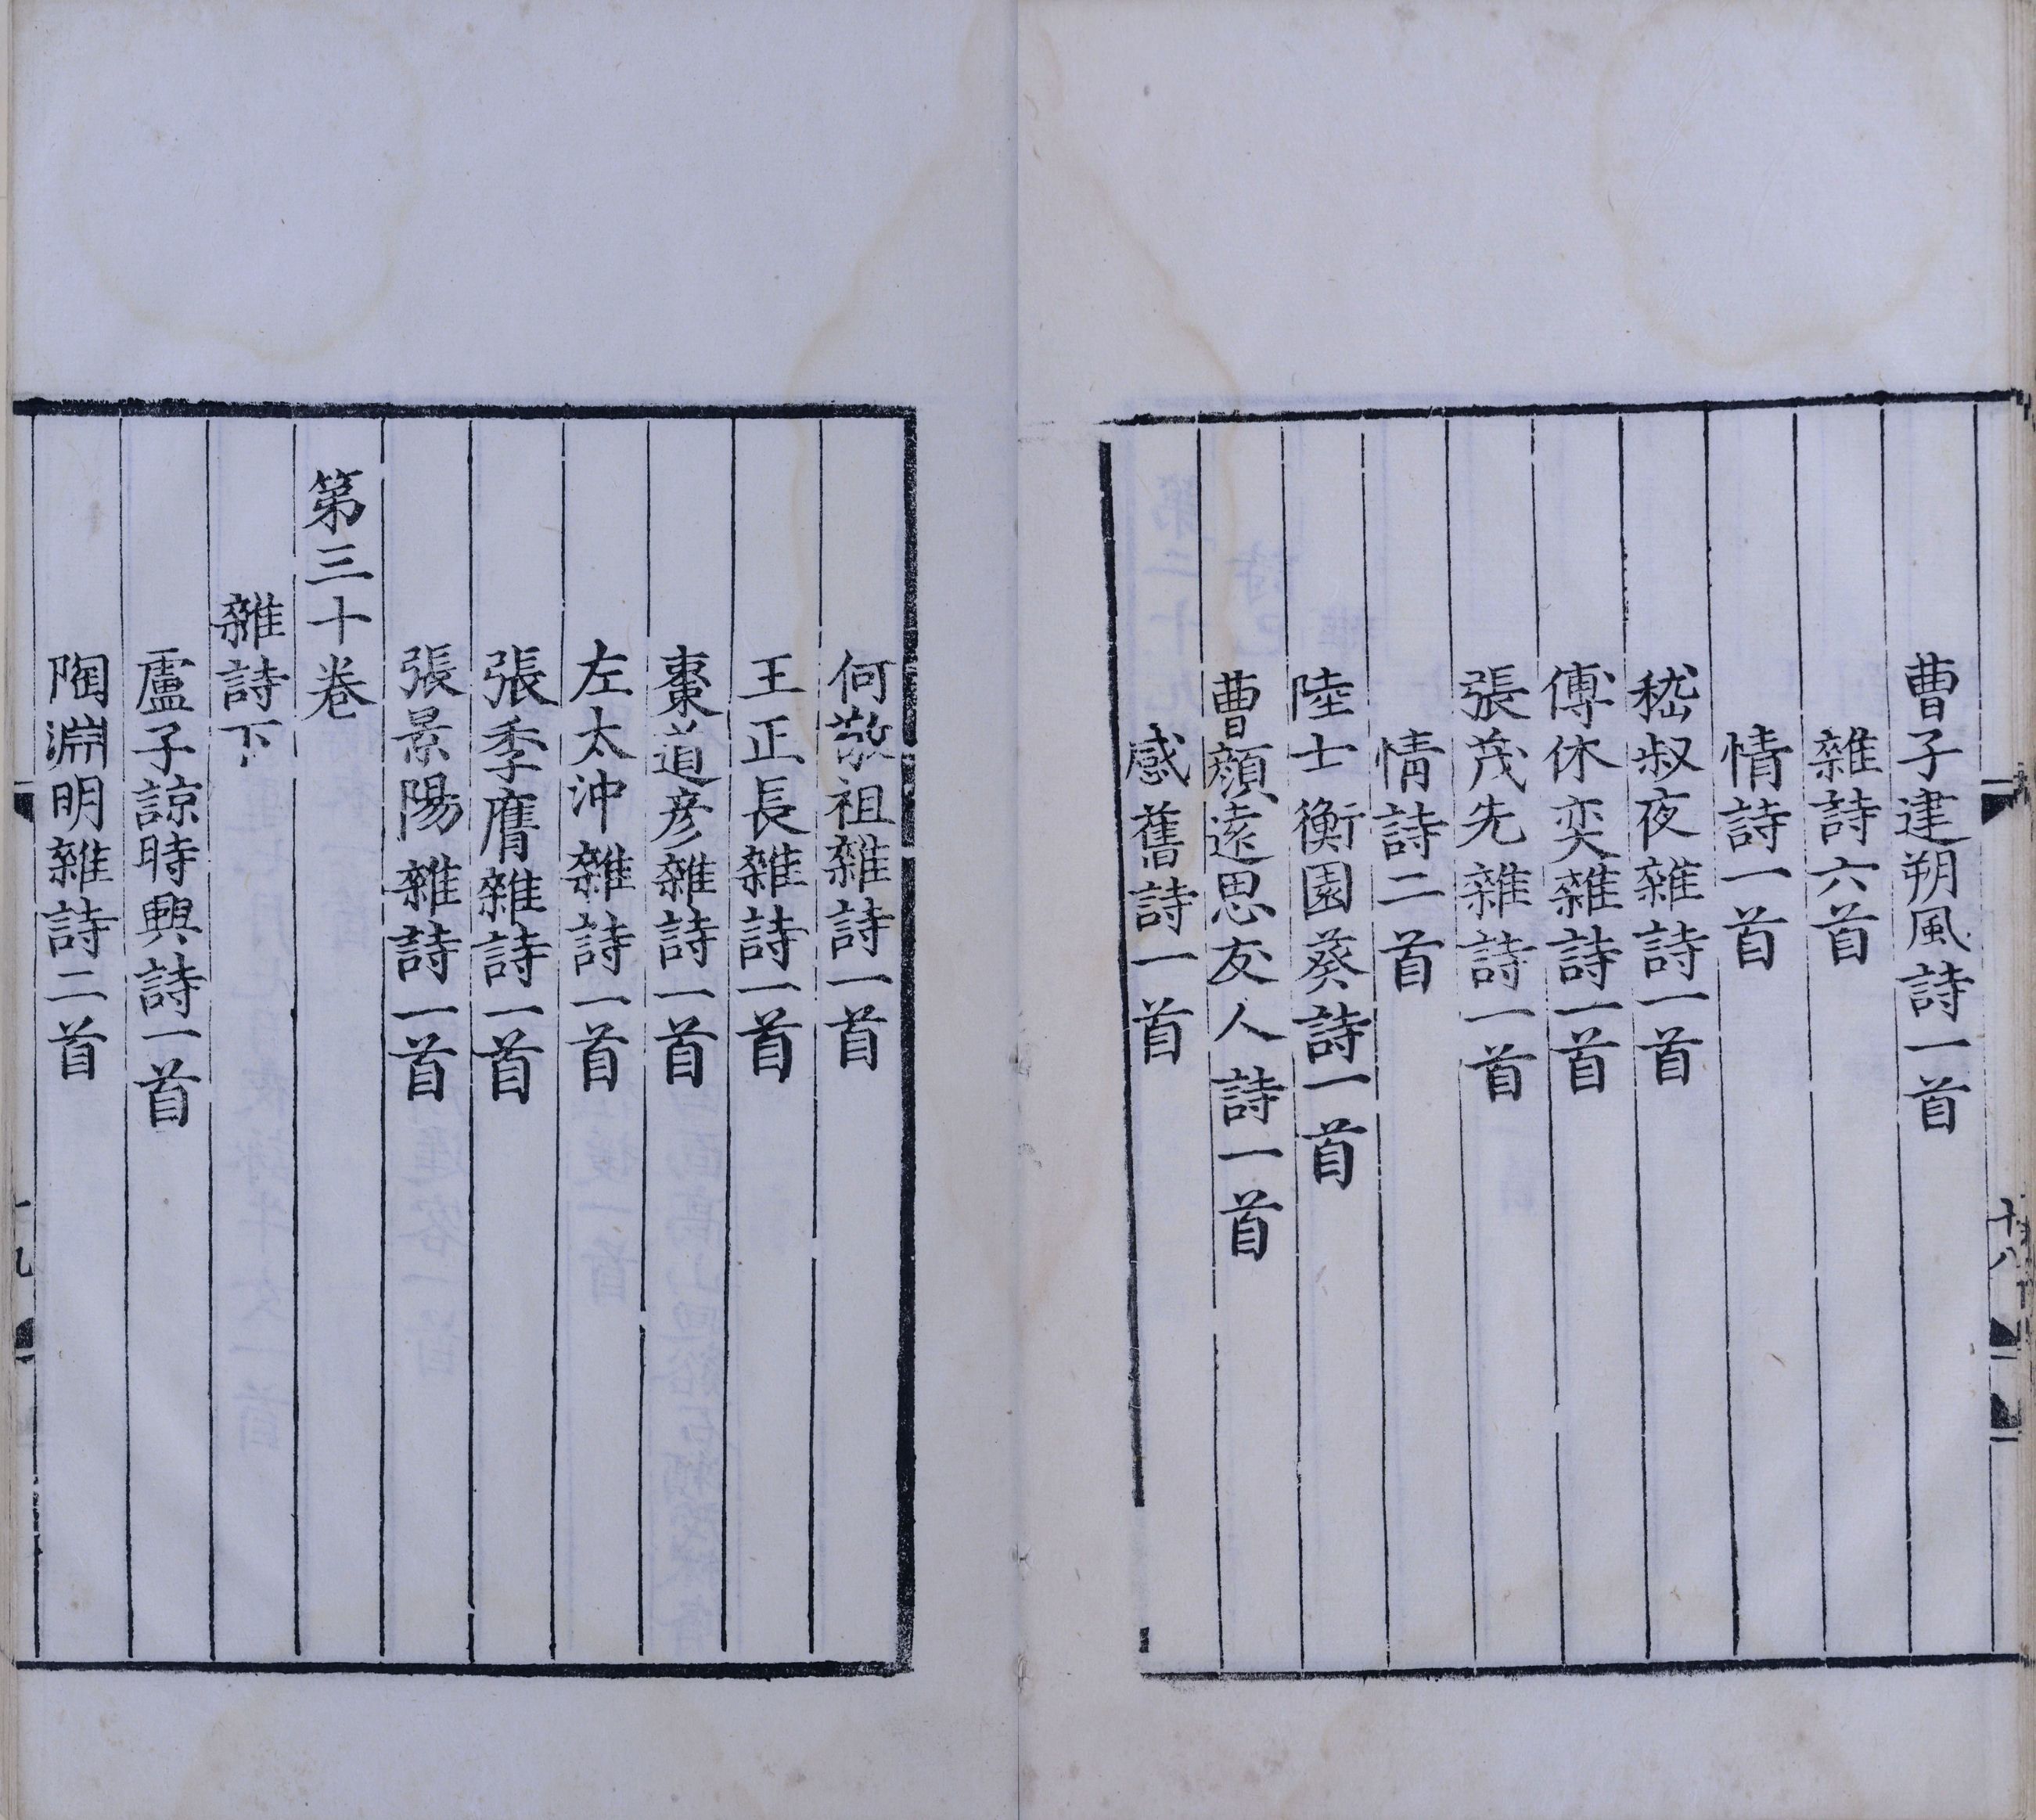 曹子建朔風詩一首
雜詩六首
情詩一首
嵇叔夜雜詩一首
傅休奕雜詩一首
張茂先雜詩一首
情詩二首
陸士衡園葵詩一首
曹顏遠思友人詩一首
感舊詩一首
十八
何敬祖雜詩一首
王正長雜詩一首
棗道彥雜詩一首
左太沖雜詩一首
張季鷹雜詩一首
張景陽雜詩一首
第三十卷
雜詩下
盧子諒時興詩一首
陶淵明雜詩二首
十九